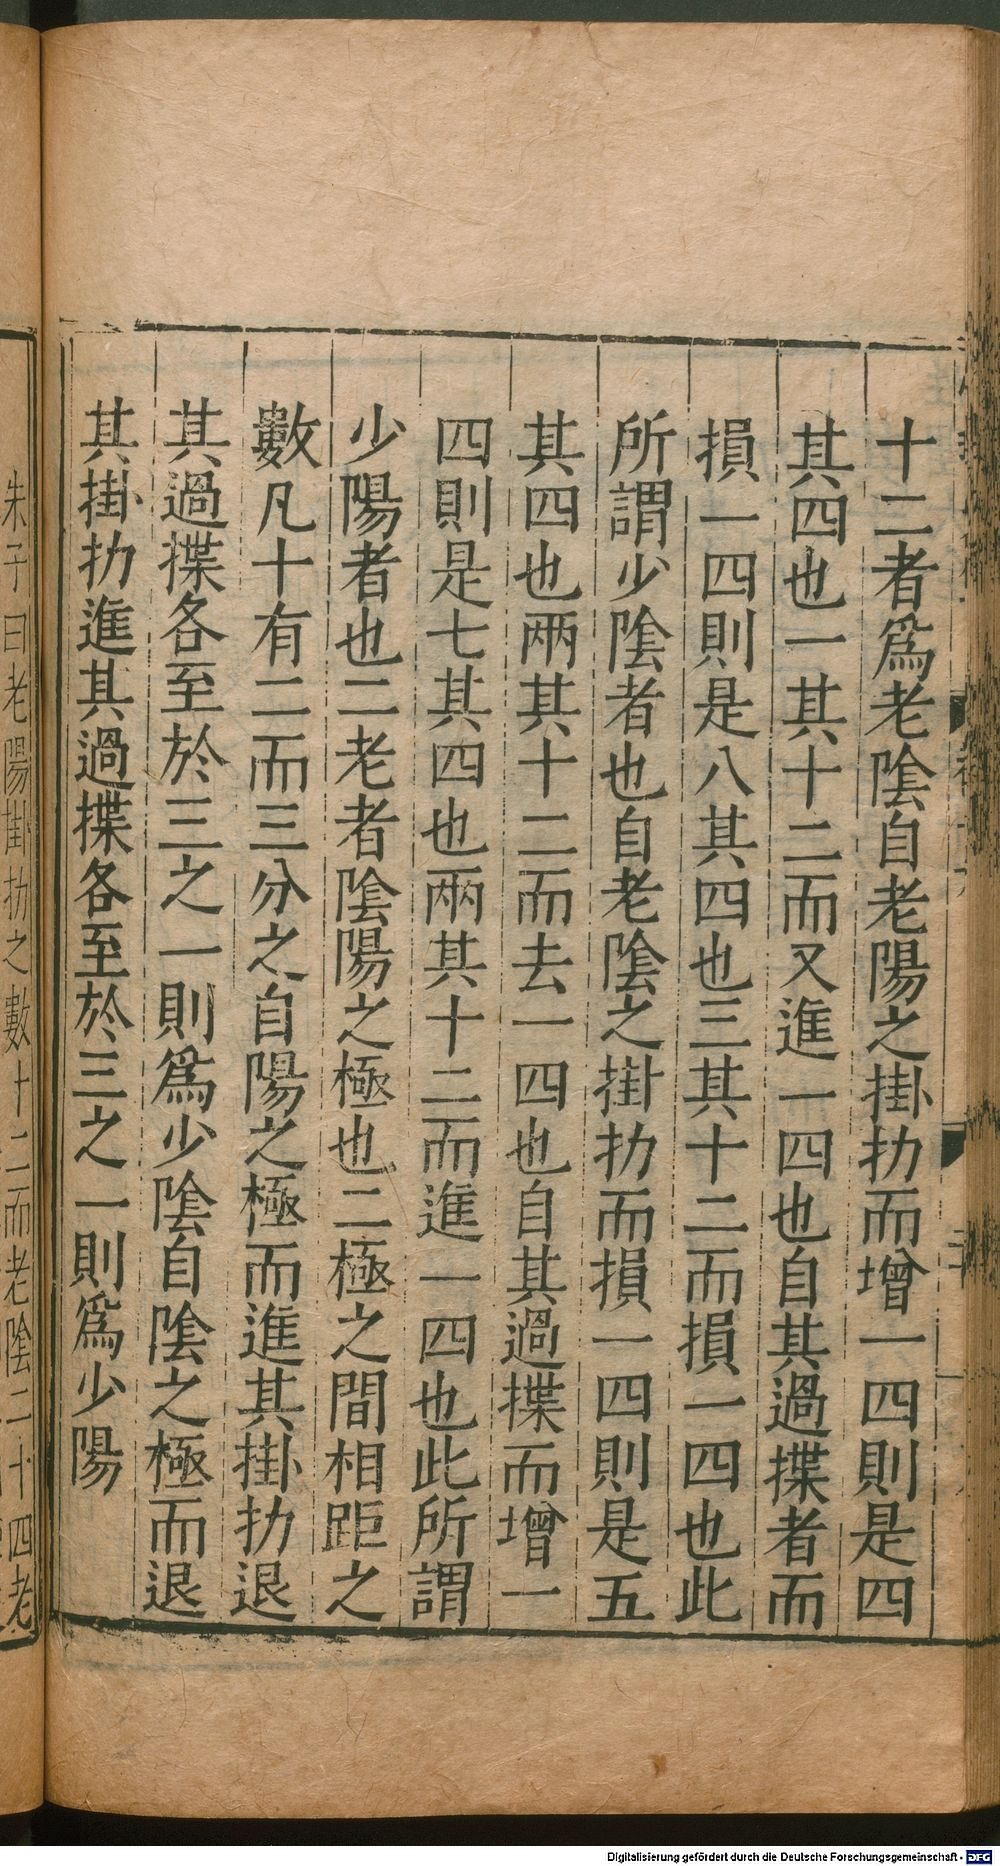 十二者爲老陰自老陽之掛扐而增一四則是四
其四也一其十二而又進一四也自其過揲者而
損一四則是八其四也三其十二而損一四也此
所謂少陰者也自老陰之掛扐而損一四則是五
其四也兩其十二而去一四也自其過揲而增一
四則是七其四也兩其十二而進一四也此所謂
少陽者也二老者陰陽之極也二極之間相距之
數凡十有二而三分之自陽之極而進其掛扐退
其過揲各至於三之一則爲少陰自陰之極而退
其掛扐進其過揲各至於三之一則爲少陽
朱子曰老陽掛扐之數十二而老陰二十四老
Digitalisierung gefördert durch die Deutsche Forschungsgemeinschaft - DFG